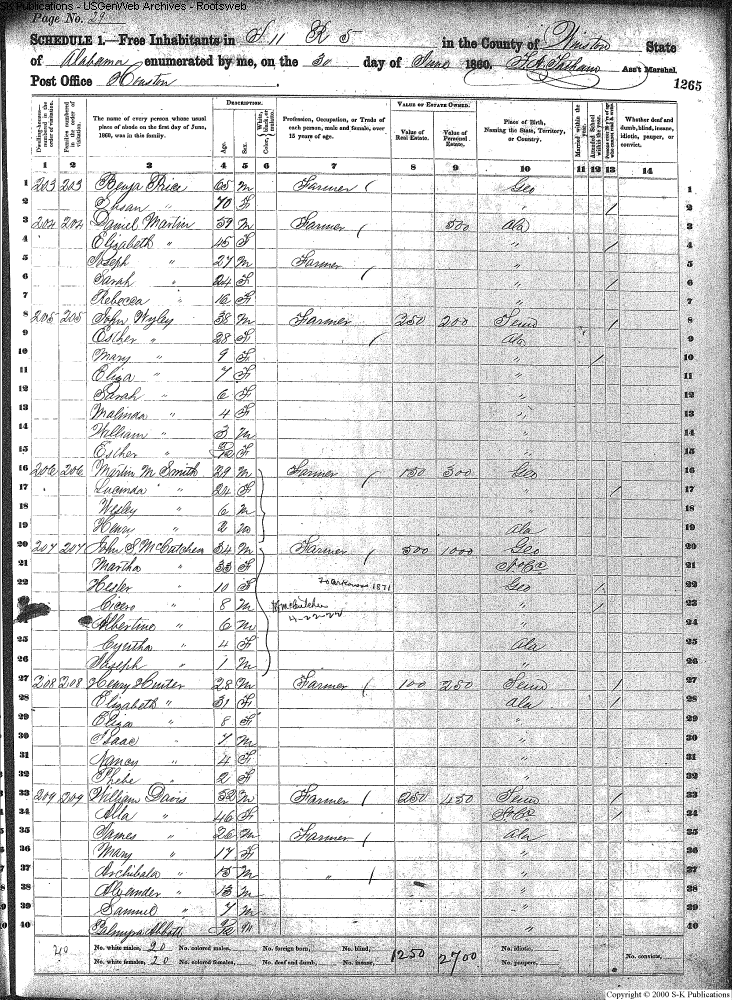 S-K Publications - USGenWeb Archives - Rootsweb
Page No. 29
SCHEDULE 1.—Free Inhabitants in T 11 R 5 in the County of Winston State
of Alabama enumerated by me, on the 30 day of June 1860. Ass't Marshal.
Post Office Houston
1265
Dwelling-houses—numbered in the order of visitation.
Families numbered in the order of visitation.
The name of every person whose usual place of abode on the first day of June, 1860, was in this family.
DESCRIPTION.
Age.
Sex.
Color, White, black, or mulatto.
Profession, Occupation, or Trade of each person, male and female, over 15 years of age.
VALUE OF ESTATE OWNED.
Value of Real Estate.
Value of Personal Estate.
Place of Birth, Naming the State, Territory, or Country.
Married within the year.
Attended School within the year.
Whether deaf and dumb, blind, insane, idiotic, pauper, or convict.
1 2 3 4 5 6 7 8 9 10 11 12 13 14
1 203 203 Benja Price 65 M Farmer Geo 1
2 Susan " 70 F / 2
3 204 204 Daniel Martin 59 M Farmer 500 Ala 3
4 Elizabeth " 45 F " / 4
5 Joseph " 27 M Farmer " 5
6 Sarah " 24 F " / 6
7 Rebecca " 16 F " 7
8 205 205 John Wyley 38 M Farmer 250 200 Tenn / 8
9 Esther " 28 F Ala 9
10 Mary " 9 F " / 10
11 Eliza " 7 F " 11
12 Sarah " 6 F " 12
13 Malinda " 4 F " 13
14 William " 3 M " 14
15 Esther " F " 15
16 206 206 Martin M Smith 29 M Farmer 150 300 Geo 16
17 Lucinda " 24 F " / 17
18 Wesley " 6 M " 18
19 Henry " 2 M Ala 19
20 207 207 John S McCutchen 34 M Farmer 500 1000 Geo 20
21 Martha " 33 F 21
22 Hester " 10 F To Arkansas 1871 Geo / 22
23 Cicero " 8 M McCutchen " / 23
24 Albertine " 6 M 4-22-22 " 24
25 Cyntha " 4 F Ala 25
26 Joseph " 1 M " 26
27 208 208 Henry Hunter 28 M Farmer 100 250 Tenn / 27
28 Elizabeth " 31 F Ala / 28
29 Eliza " 8 F " 29
30 Isaac " 7 M " 30
31 Nancy " 4 F " 31
32 Phebe " 2 F " 32
33 209 209 William Davis 52 M Farmer 250 450 Tenn / 33
34 Alla " 46 F / 34
35 James " 26 M Farmer Ala 35
36 Mary " 17 F " 36
37 Archibald " 15 M " " 37
38 Alexander " 13 M " 38
39 Samuel " 7 M " 39
40 Palmyra Abbott M " 40
40 No. white males, 20 No. colored males, No. foreign born, No. blind, 1250 2700 No. idiotic,
No. white females, 20 No. colored females, No. deaf and dumb, No. insane, No. paupers, No. convicts,
Copyright © 2000 S-K Publications